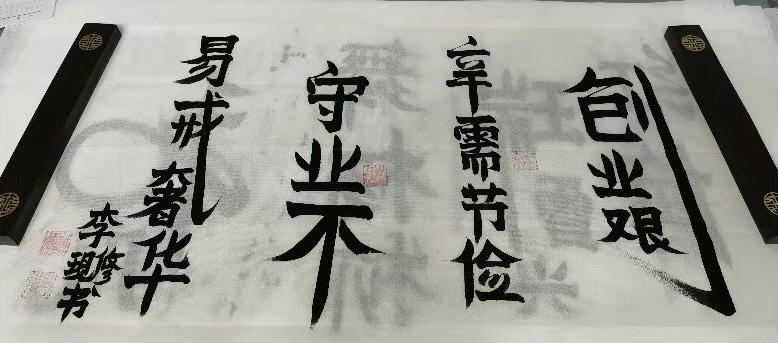 创业艰
辛需节俭
守业不
易戒奢华
李修现书